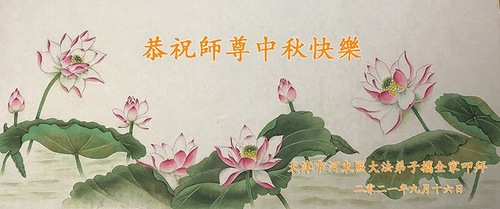 恭祝師尊中秋快樂
天津市河東區大法弟子攜全家叩拜
二零二一年九月十六日